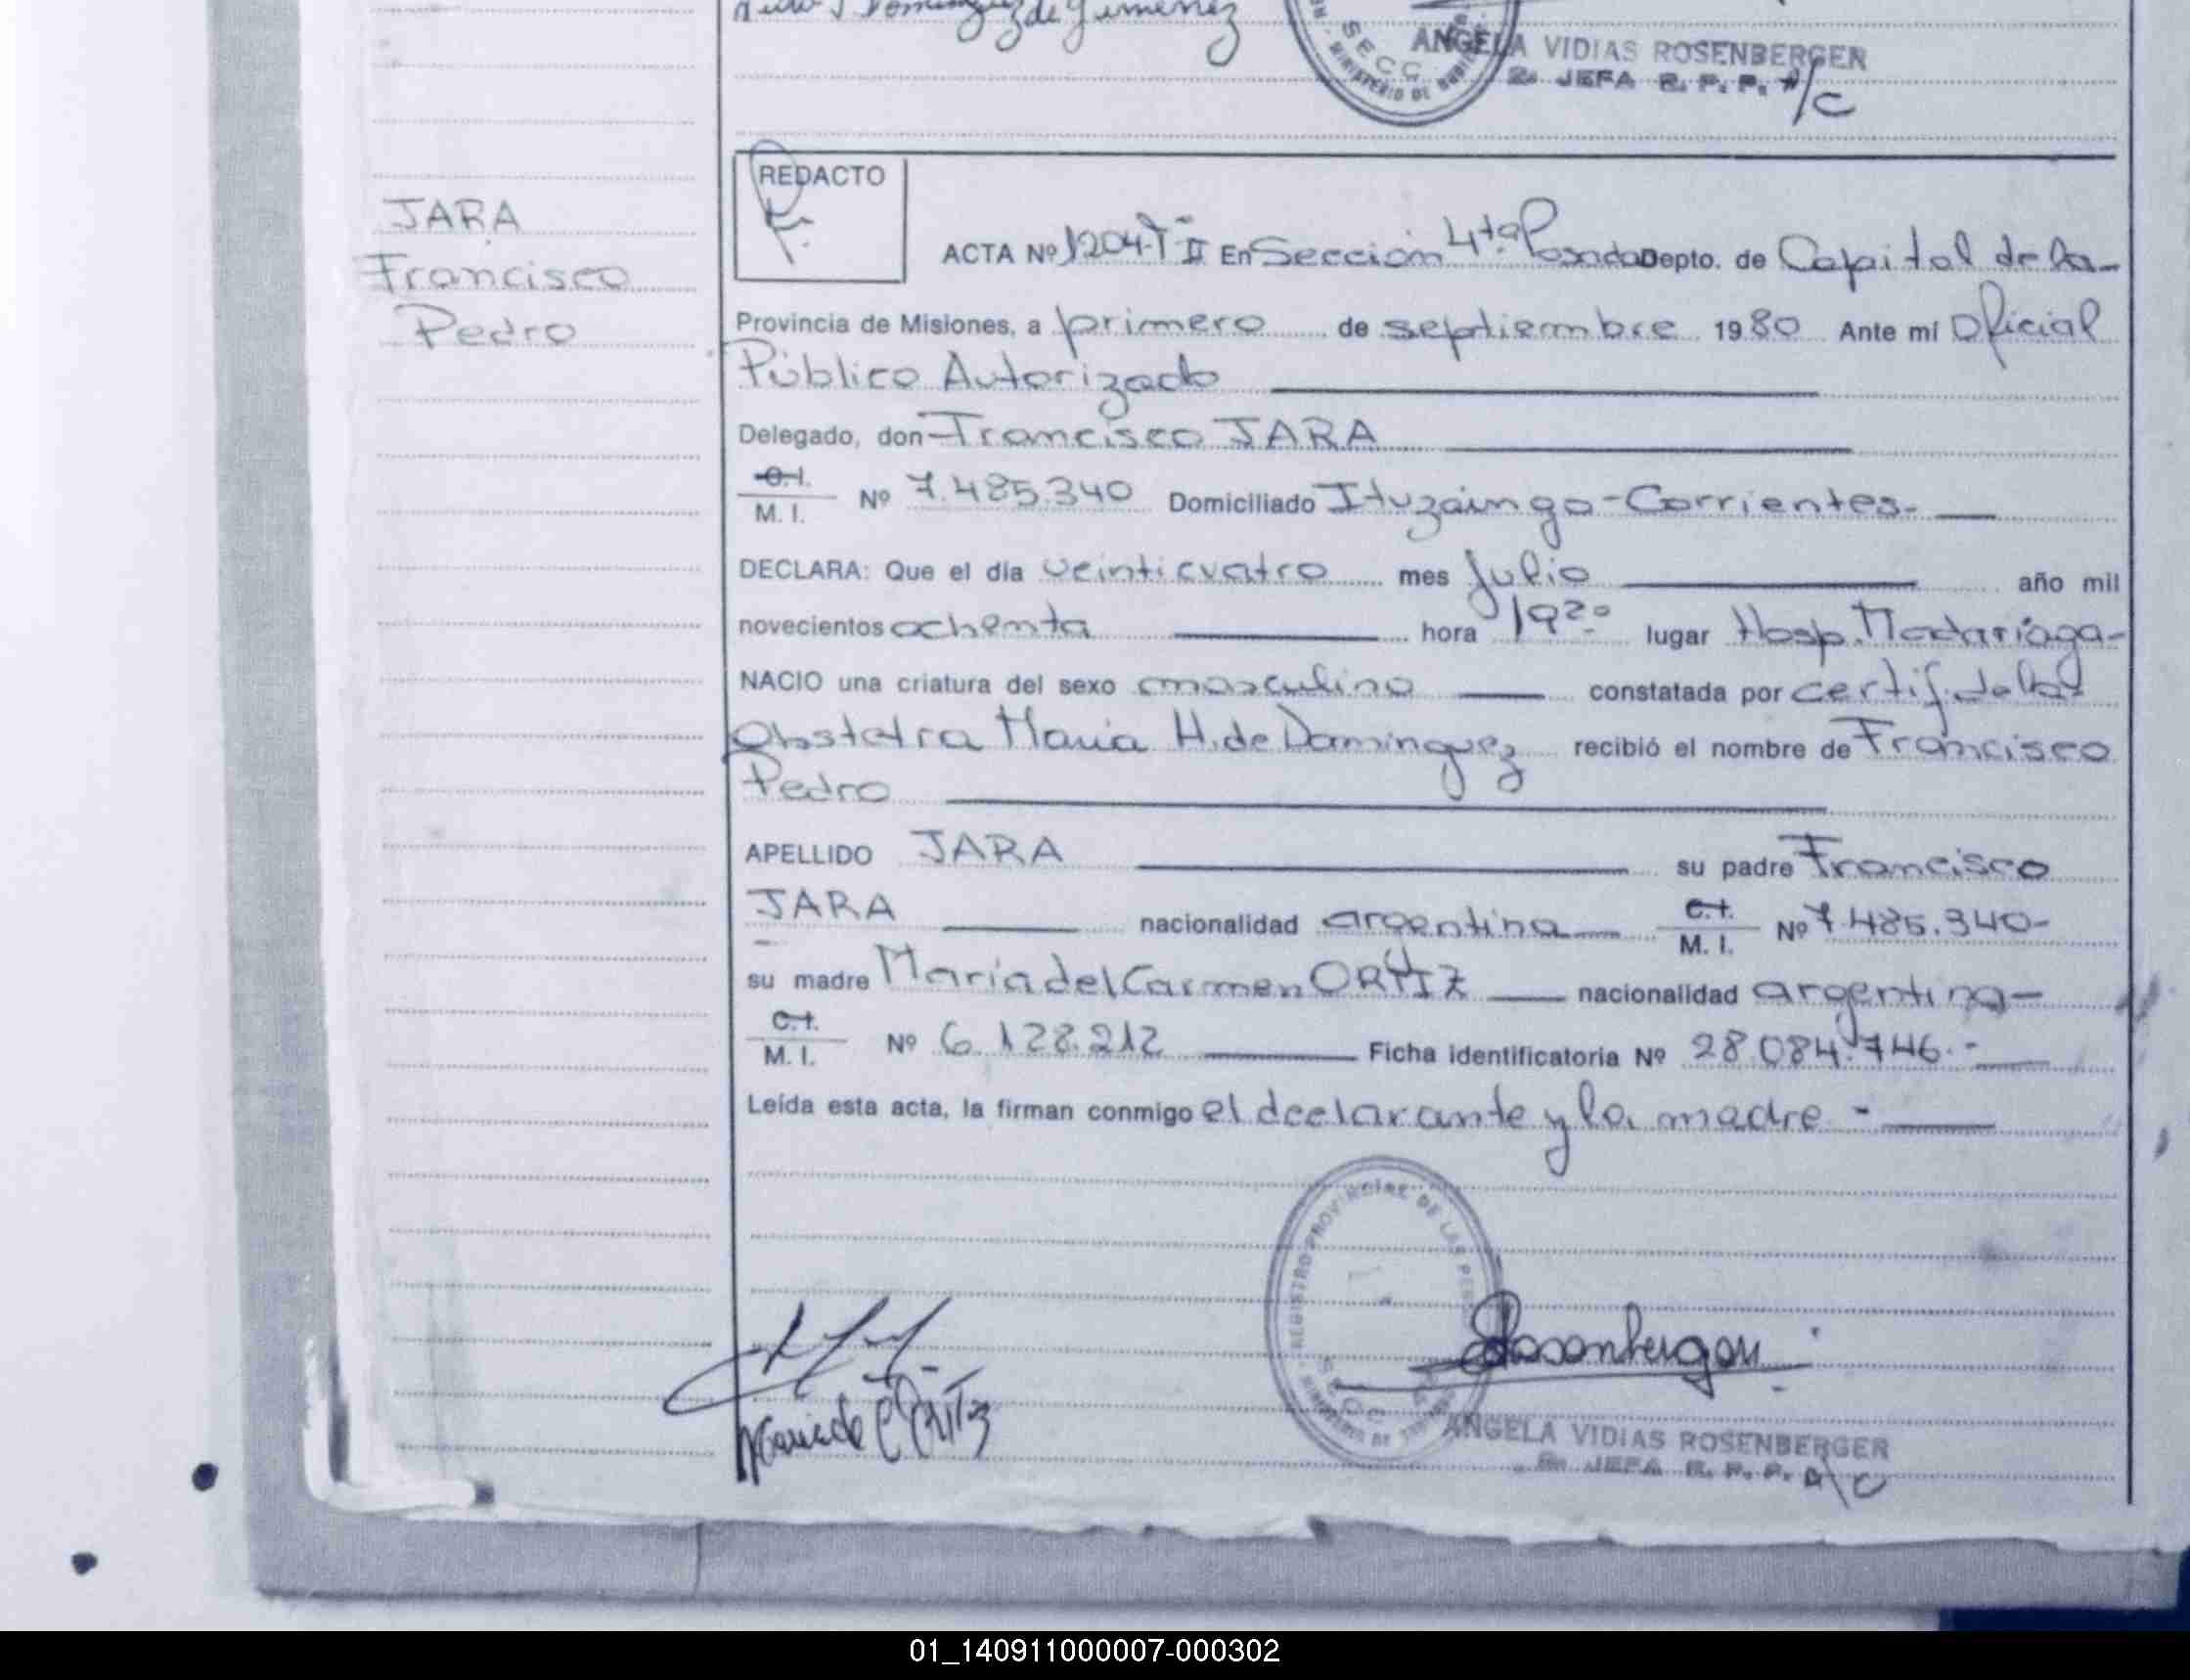 de Gimenez
SECC.
MINISTERIO DE
ANGELA VIDIAS ROSENBERGER
2a. JEFA R. P. P. A/C
REDACTO
JARA
Francisco
Pedro
ACTA Nº 1204-T II En Sección 4ta. Posadas Depto. de Capital de la-
Provincia de Misiones, a primero de septiembre 1980 Ante mí Oficial
Público Autorizado
Delegado, don Francisco JARA
C.I.
M. I. Nº 7.485.340 Domiciliado Ituzaingo-Corrientes.-
DECLARA: Que el día veinticuatro mes Julio año mil
novecientos ochenta hora lugar Hosp. Madariaga-
NACIO una criatura del sexo masculino constatada por certif. de la
Obstetra Maria H. de Dominguez recibió el nombre de Francisco
Pedro
APELLIDO JARA su padre Francisco
JARA nacionalidad argentina C.I.
M. I. Nº 7.485.340-
su madre Maria del Carmen ORTIZ nacionalidad argentina-
C.I.
M. I. Nº 6.128.212 Ficha identificatoria Nº 28.084.746.-
Leída esta acta, la firman conmigo el declarante y la madre.-
REGISTRO PROVINCIAL DE LAS
SECC.
Rosenberger
Maria de C Ortiz
ANGELA VIDIAS ROSENBERGER
2a. JEFA R. P. P. A/C
01_140911000007-000302